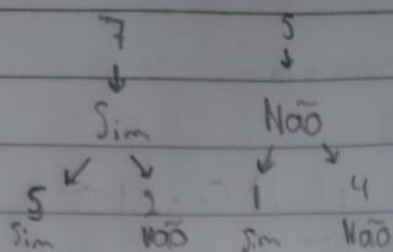 7 5
Sim Não
5 2 1 4
Sim Não Sim Não